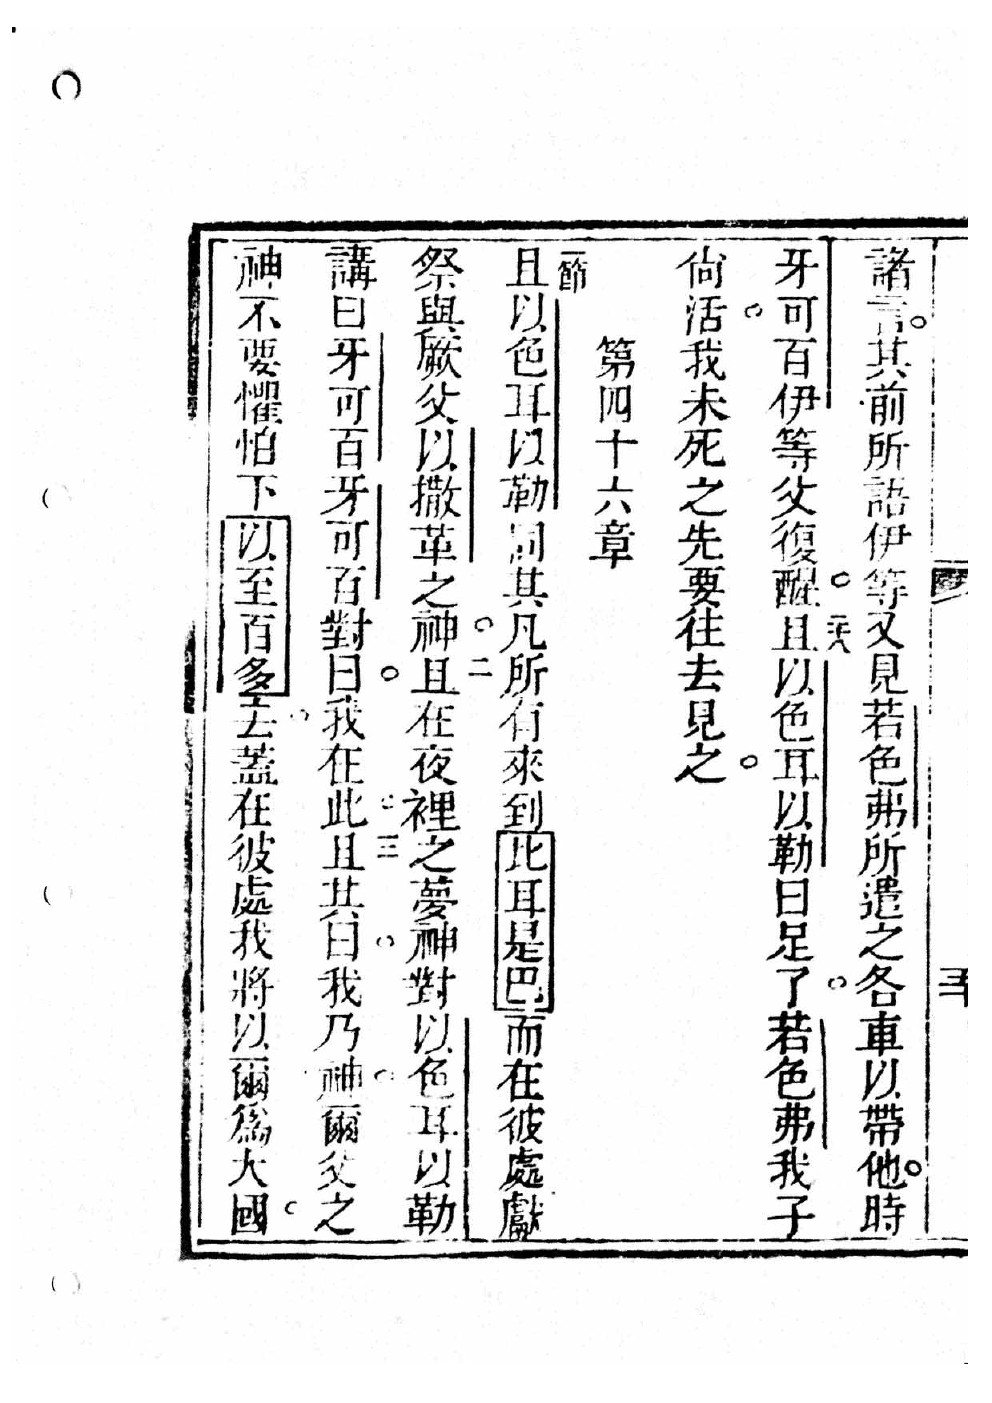 諸言。其前所語伊等又見若色弗所遣之各車以帶他。時
牙可百伊等父復醒。二十八且以色耳以勒曰足了。若色弗我子
尙活。我未死之先要往去見之。
第四十六章
一節且以色耳以勒同其凡所有來到比耳是巴而在彼處獻
祭與厥父以撒革之神。二且在夜裡之夢神對以色耳以勒
講曰牙可百牙可百對曰。我在此。三且其曰。我乃神。爾父之
神不要懼怕下以至百多去。蓋在彼處我將以爾爲大國。